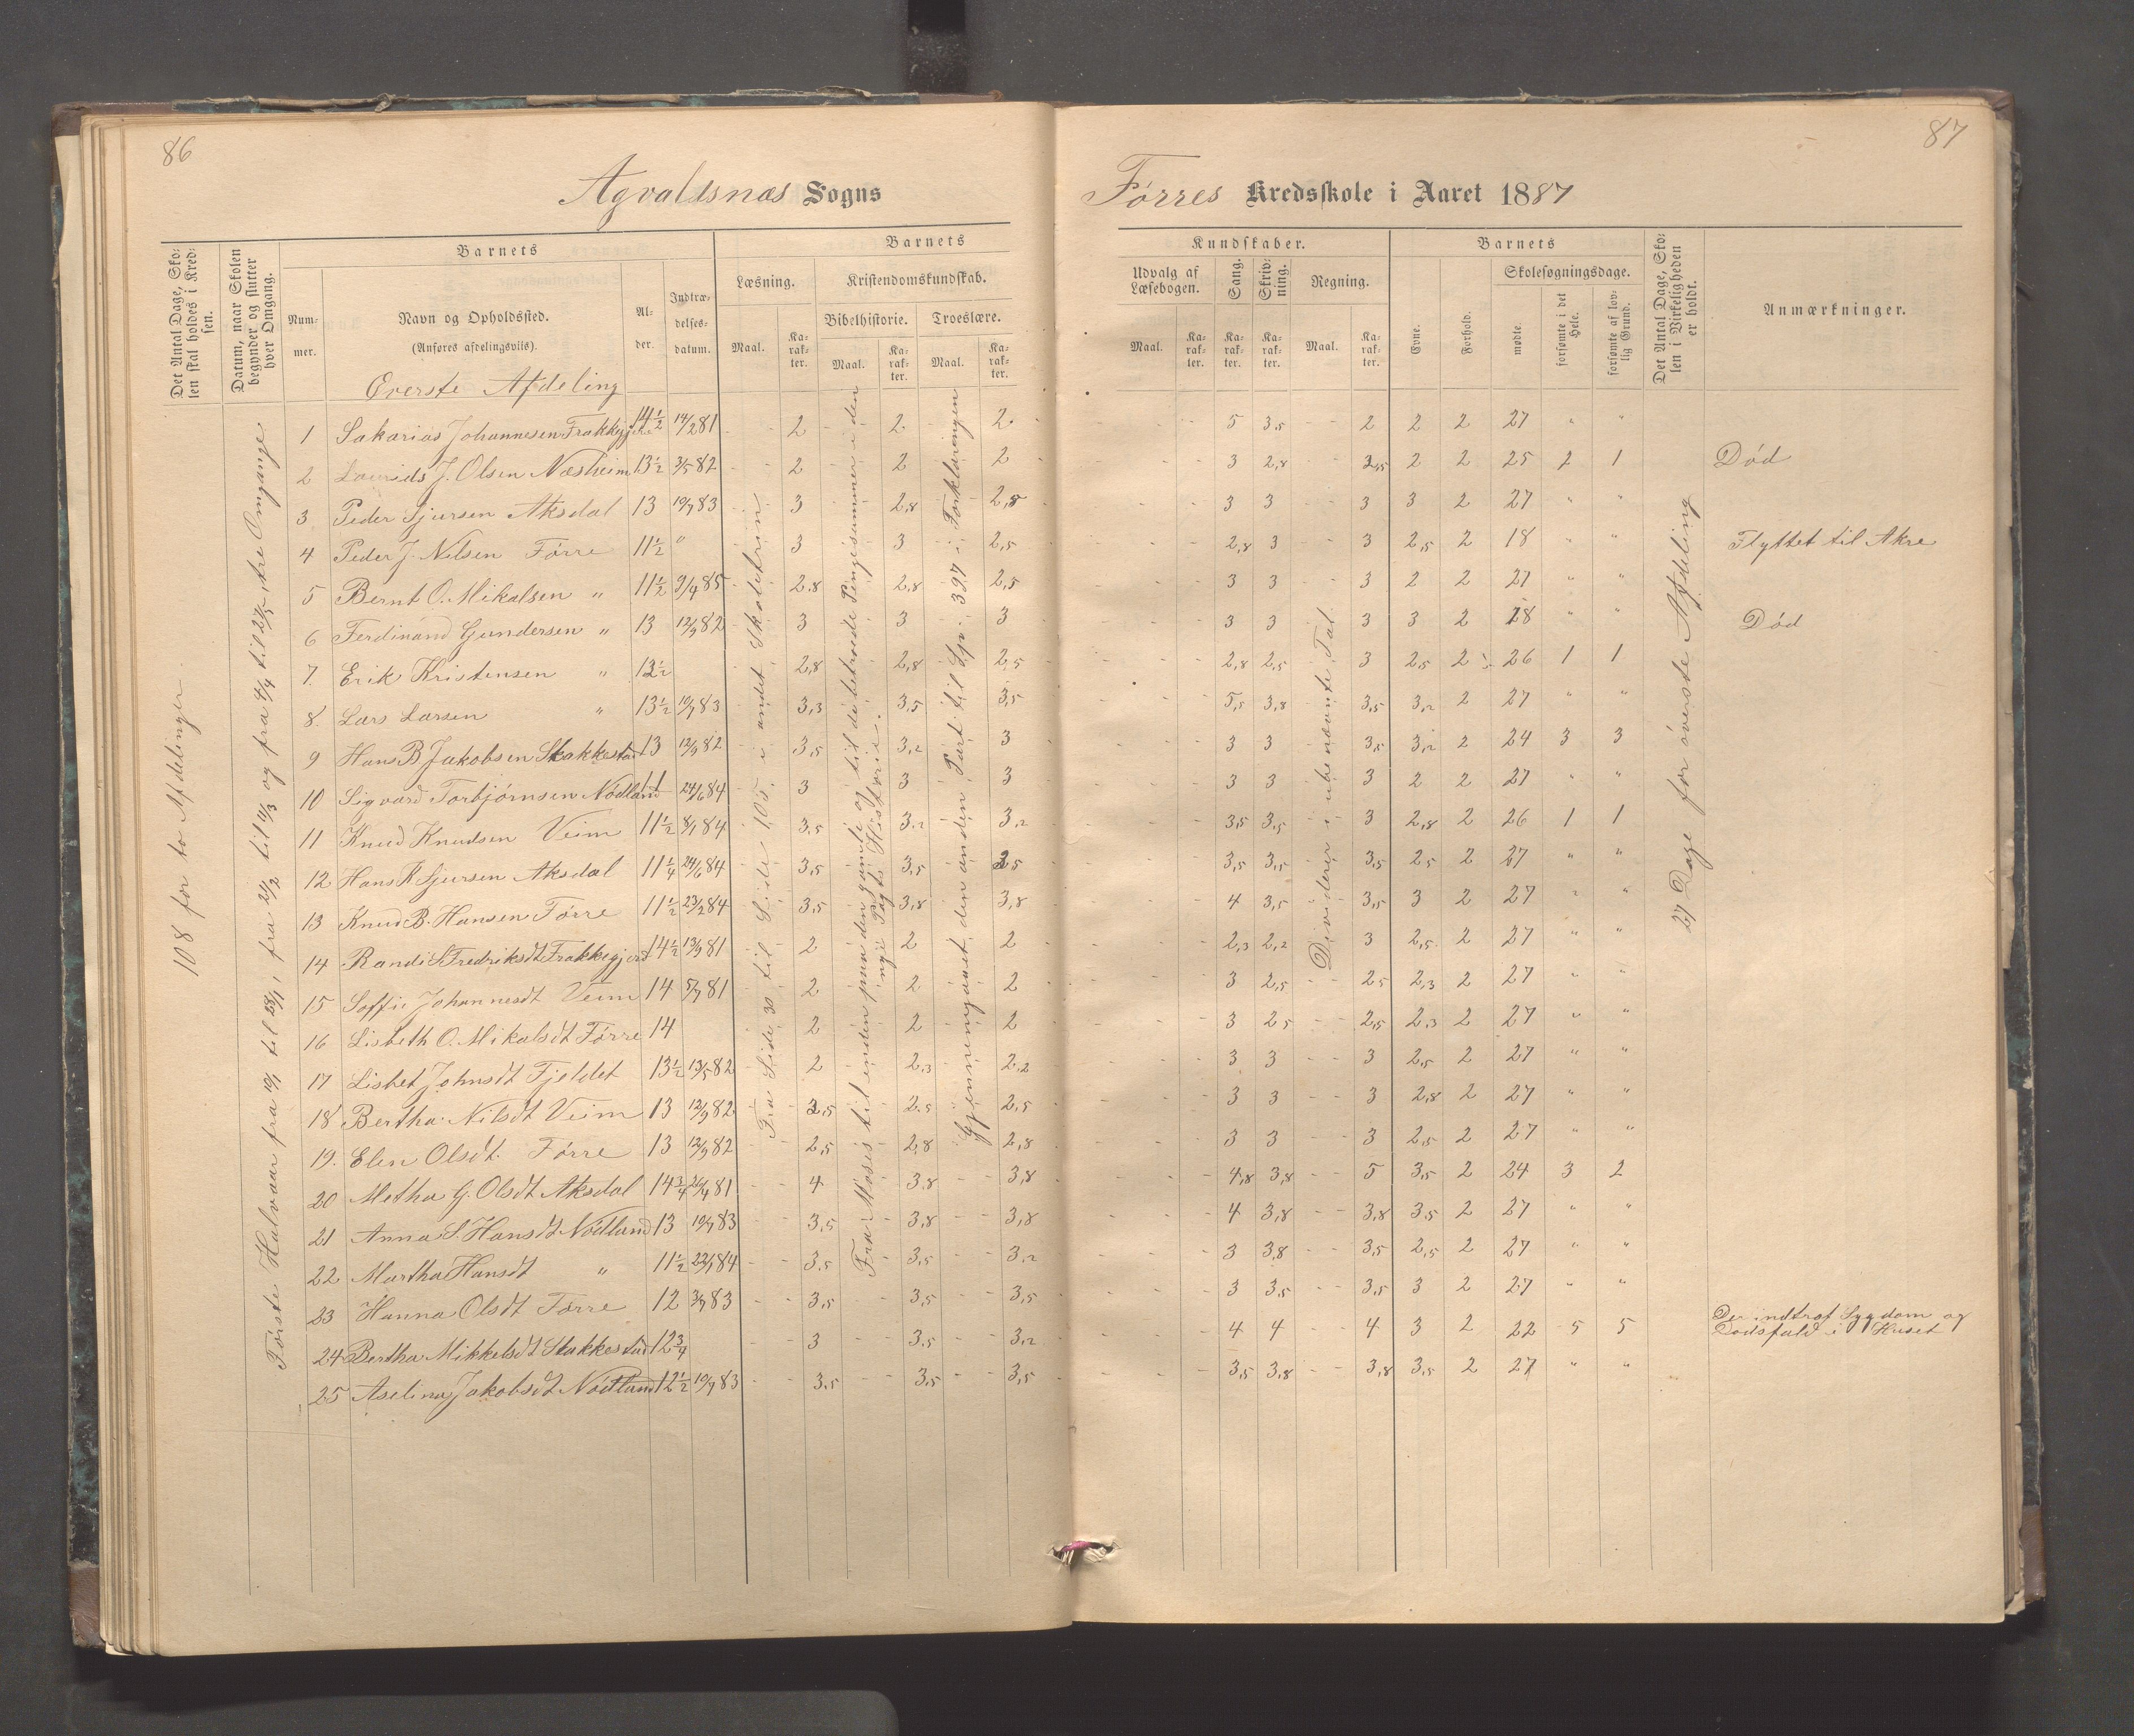 86
Agvaldsnæs Sogns
Det Antal Dage, Skolen skal holdes i Kredsen.
Datum, naar Skolen begynder og slutter hver Omgang.
Barnets
Nummer.
Navn og Opholdssted.
(Anføres afdelingsviis).
Alder.
Indtrædelsesdatum.
Barnets
Læsning.
Kristendomskundskab.
Bibelhistorie.
Troeslære.
Maal.
Karakter.
Maal.
Karakter.
Maal.
Karakter.
Øverste Afdeling
108 for to Afdelinger
Første Halvaar fra 10/1 til 28/1, fra 21/2 til 11/3 og fra 4/4 til 23/5, tre Omgange
Fra Side 30 til Side 105 i andet Skoletrin
Fra Moses til enden paa den gamle og til de betroede Pengesummer i den nye Pagts Historie.
Gjennemgaaet den anden Part til Sp. 397 i Forklaringen
1 Sakarias Johannesen Frakkagjerd 14½ 14/2 81 - - 2 - - 2 - - 2
2 Laurids J. Olsen Næsheim 13½ 3/5 82 - - 2 - - 2 - - 2
3 Peder Sjursen Aksdal 13 10/7 83 - - 3 - - 2,8 - - 2,8
4 Peder J. Nilsen Førre 11½ " - - 3 - - 3 - - 2,5
5 Bernt O. Mikalsen " 11½ 9/4 85 - - 2.8 - - 2,8 - - 2,5
6 Ferdinand Gundersen " 13 12/9 82 - - 3 - - 3 - - 3
7. Erik Kristensen " 13½ - - 2,8 - - 2,8 - - 2,5
8. Lars Larsen " 13½ 10/7 83 - - 3,3 - - 3,5 - - 3,5
9 Hans B Jakobsen Stakkestad 13 12/9 82 - - 3,5 - - 3,2 - - 3
10 Sigvard Torbjørnsen Nødland 11 24/6 84 - - 3 - - 3 - - 3
11 Knud Knudsen Veim 11½ 8/1 84 - - 3,5 - - 3,2 - - 3,2
12 Hans R Sjursen Aksdal 11¼ 24/6 84 - - 3,5 - - 3,5 - - 3,5
13 Knud B. Hansen Førre 11½ 23/2 84 - - 3,5 - - 3,8 - - 3,8
14 Randi S Fredriksdt Frakkagjerd 14½ 13/9 81 - - 2 - - 2 - - 2
15 Soffie Johannesdt Veim 14 5/7 81 - - 2 - - 2 - - 2
16 Lisbeth O. Mikalsdt Førre 14 - - 2 - - 2 - - 2
17 Lisbet Johnsdt Fjeldet 13½ 13/5 82 - - 2 - - 2,3 - - 2,2
18 Bertha Nilsdt Veim 13 12/9 82 - - 2,5 - - 2,5 - - 2,5
19. Elen Olsdt. Førre 13 12/9 82 - - 2,5 - - 2,8 - - 2,8
20 Metha G. Olsdt Aksdal 14¾ 26/4 81 - - 4 - - 3,8 - - 3,8
21 Anna S. Hansdt Nødland 13 10/7 83 - - 3,5 - - 3,8 - - 3,8
22 Martha Hansdt " 11½ 22/1 84 - - 3,5 - - 3,5 - - 3,2
23 Hanna Olsdt Førre 12 3/9 83 - - 3,5 - - 3,5 - - 3,5
24 Bertha Mikkelsdt Stakkestad 12¾ - - 3 - - 3,5 - - 3,2
25 Aselina Jakobsdt Nødland 12½ 10/7 83 - - 3,5 - - 3,5 - - 3,5
87
Førres Kredsskole i Aaret 1887
Kundskaber.
Udvalg af Læsebogen.
Sang.
Skrivning.
Regning.
Maal.
Karakter.
Karakter.
Karakter.
Maal.
Karakter.
Barnets
Evne.
Forhold.
Skolesøgningsdage.
mødte.
forsømte i det Hele.
forsømte af lovlig Grund.
Det Antal Dage, Skolen i Virkeligheden er holdt.
Anmærkninger.
Dividerer i ubenævnte Tal
27 Dage for øverste Afdeling
- - - 5 3,5 - - 2 2 2 27 " "
- - - 3 2,8 - - 2,5 2 2 25 2 1 Død
- - - 3 3 - - 3 3 2 27 " "
- - - 2,8 3 - - 3 2,5 2 18 " " Flyttet til Akre
- - - 3 3 - - 3 2 2 27 " "
- - - 3 3 - - 3 3 2 18 " " Død
- - - 2,8 2,5 - - 3 2,5 2 26 1 1
- - - 5,5 3,8 - - 3,5 3,2 2 27 " "
- - - 3 3 - - 3,5 3,2 2 24 3 3
- - - 3 3 - - 3 2 2 27 " "
- - - 3,5 3,5 - - 3 2,8 2 26 1 1
- - - 3,5 3,5 - - 3,5 2,5 2 27 " "
- - - 4 3,5 - - 3,5 3 2 27 " "
- - - 2,3 2,2 - - 3 2,5 2 27 " "
- - - 3 2,5 - - 2,5 2,3 2 27 " "
- - - 3 2,5 - - 2,5 2,3 2 27 " "
- - - 3 3 - - 3 2,5 2 27 " "
- - - 3 3 - - 3 2,8 2 27 " "
- - - 3 3 - - 3 2,5 2 27 " "
- - - 4,8 3,8 - - 5 3,5 2 24 3 2
- - - 4 3,8 - - 3,8 3,5 2 27 " "
- - - 3 3,8 - - 3,5 2,5 2 27 " "
- - - 3 3,5 - - 3,5 3 2 27 " "
- - - 4 4 - - 4 3 2 22 5 5 Der indtraf Sygdom og Dødsfald i Huset
- - - 3,5 3,8 - - 3,8 3,5 2 27 " "